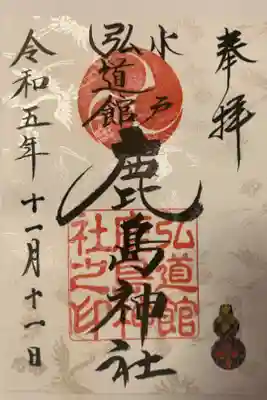 奉拝
水戸
弘道館
鹿島神社
弘道館
鹿島神
社之印
令和五年十一月十一日